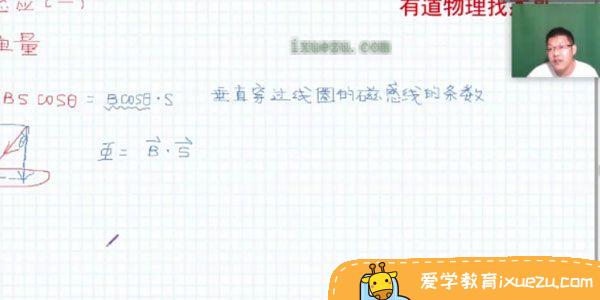 应(一)
有道物理找
量
ixuezu.com
BS cosθ = Bcosθ·S 垂直穿过线圈的磁感线的条数
θ
Φ = B⃗·S⃗
爱学教育ixuezu.com